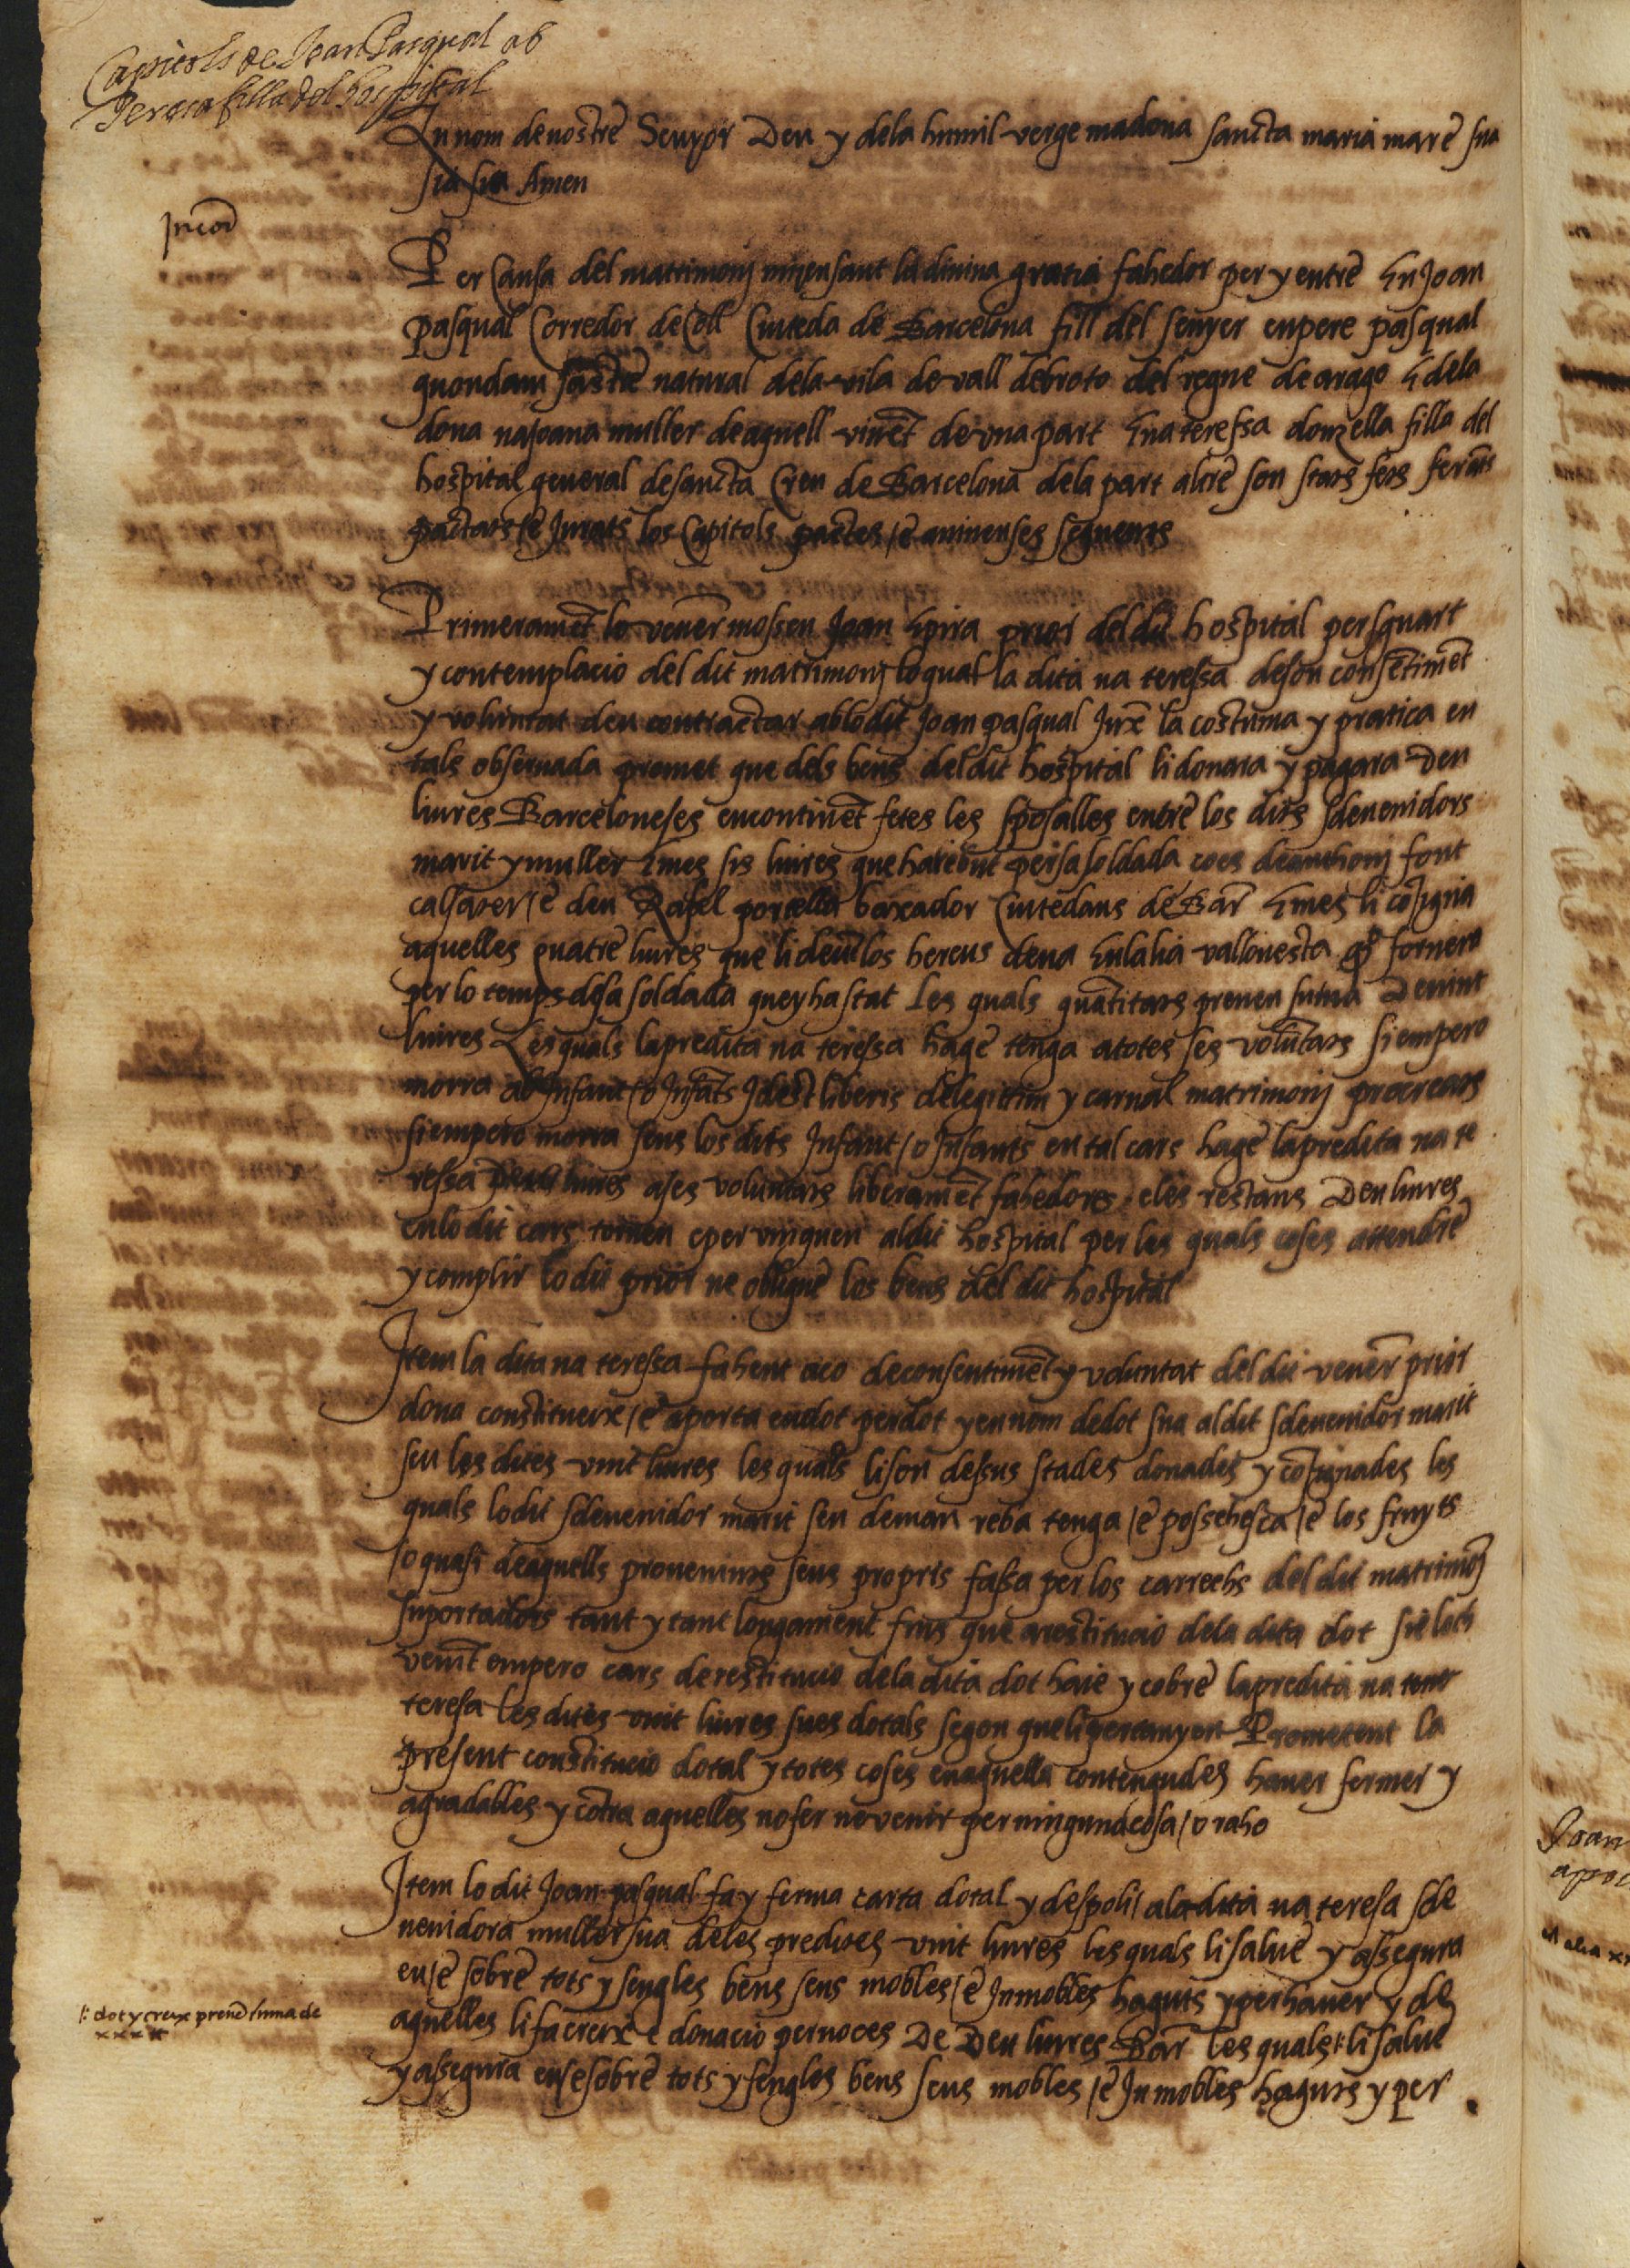 Capitols de Joan Pasqual ab
Teresa filla del hospital
En nom de nostre Senyor Deu y dela humil verge madona sancta maria mare sua
sia Amen
Per causa del matrimonj mijensant la divina gratia fahedor per y entre En Joan
pasqual Corredor de Coll Ciuteda de Barcelona fill del senyer enpere pasqual
quondam sastre natural dela vila de vall debroto del regne de arago E dela
dona najoana muller de aquell viuet de vna part Ena teressa donzella filla del
hospital general de sancta Creu de Barcelona dela part altre son stats fets fermats
pactats /e Jurats los Capitols pactes /e auinenses seguents
Primeramet lo vener mossen Joan Spira prior del dit hospital per sguart
y contemplacio del dit matrimonj lo qual la dita na teressa deson consetimet
y voluntat deu contractar ablodit Joan pasqual Juxe la costuma y pratica en
tals obseruada promet que dels bens deldit hospital li donara y pagara Deu
liures Barceloneses encontinet fetes les sposalles entre los dits sdeuenidors
marit y muller Emes sis liures que ha rebut persa soldada coes de anthonj font
calsater /e deu Rafel portella baxador Ciutedans de Bar Emes li cosigna
aquelles quatre liures que li deue los hereus dena Eulalia vallonesta fornera
per lo temps desa soldada que y ha stat Les quals quatitats prenen suma De vint
liures Les quals la predita na teressa hage tenga a totes ses volutats si empero
morra ab Infant /o Infats Jdest liberis delegittim y carnal matrimonj procreats
si empero morra sens los dits Infant /o Infants en tal cars hage la predita na te
ressa liures ases voluntats liberamet fahedores eles restans Deu liures
enlo dit cars tornen e per vinguen aldit hospital per les quals coses attendre
y complir lo dit prior ne obligue los bens del dit hospital
Item la dita na teressa fahent aco de consentimet y voluntat del dit vener prior
dona constituerx /e aporta endot perdot y en nom de dot sua aldit sdeuenidor marit
seu les dites vint liures les quals lison dessus stades donades y cosignades les
quals lo dit sdeuenidor marit seu deman reba tenga /e possehesca /e los fruyts
/o quasi de aquells prouenints seus propris fassa per los carrechs del dit matrimoj
suportadors tant y tant longament fins que a restitucio dela dita dot sie loch
venit empero cars de restitucio dela dita dot haie y cobre la predita na
teresa les dites vint liures sues dotals segon que li pertanyen Prometent la
present constitucio dotal y totes coses en aquella contengudes hauer fermes y
agradables y cotra aquelles no fer ne venir per ninguna cosa /o raho
Item lo dit Joan pasqual fa y ferma carta dotal y despoli ala dita na teresa sde
uenidora muller sua deles predites vint liures les quals li salue y assegura
en /e sobre tots y sengles bens seus mobles /e Inmobles haguts y per hauer y de
aquelles li fa crerx e donacio per noces De Deu liures Bar Les quals /: li salue
y assegura en /e sobre tots y sengles bens seus mobles /e Inmobles haguts y per
/: dot y crex prene suma de
xxx